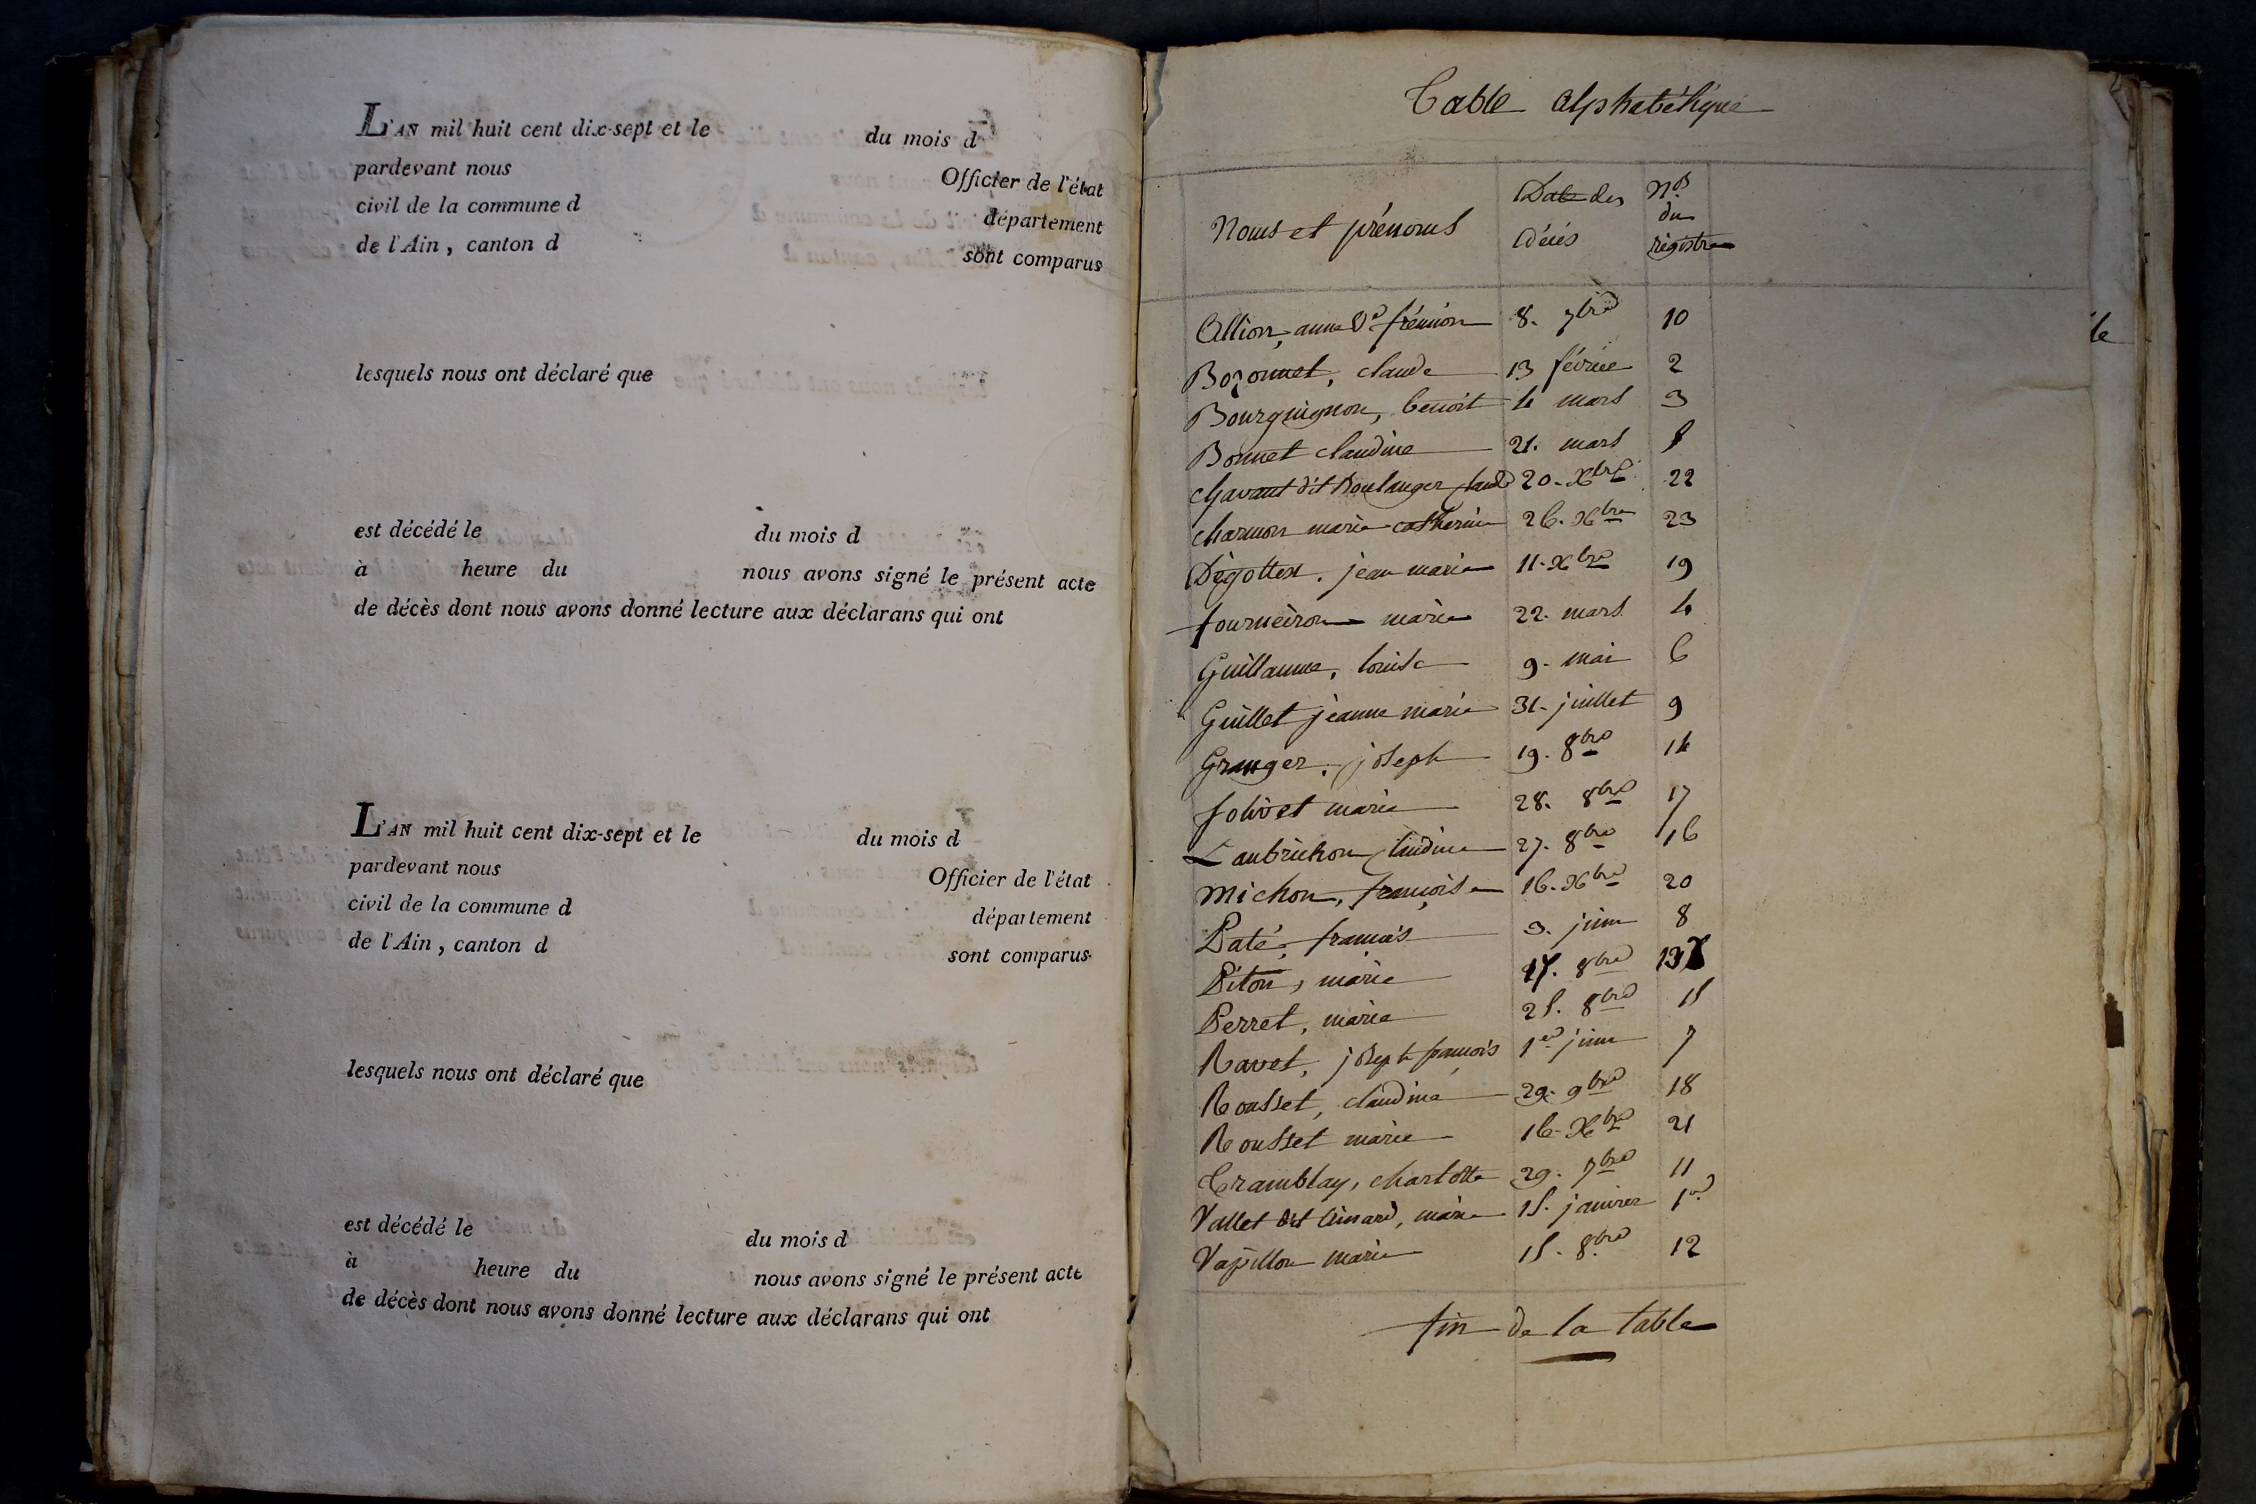 L'AN mil huit cent dix-sept et le du mois d
pardevant nous Officier de l'état
civil de la commune d département
de l'Ain, canton d sont comparus
lesquels nous ont déclaré que
est décédé le du mois d
à heure du nous avons signé le présent acte
de décès dont nous avons donné lecture aux déclarans qui ont
L'AN mil huit cent dix-sept et le du mois d
pardevant nous Officier de l'état
civil de la commune d département
de l'Ain, canton d sont comparus
lesquels nous ont déclaré que
est décédé le du mois d
à heure du nous avons signé le présent acte
de décès dont nous avons donné lecture aux déclarans qui ont
Table alphabétique
Noms et prénoms
Date des
Décés
Nos
du
régistre
Allion, anne Ve frémion 8. 7bre 10
Bozonnet, claude 13 février 2
Bourguignon, benoit 4 mars 3
Bonnet claudine 21. mars 5
Chavant dit Boulanger claude 20. Xbre 22
charmon marie catherine 26. Xbre 23
Dègottex. jean marie 11. Xbre 19
fourneiron marie 22. mars. 4
Guillaume, louise 9. mai 6
Guillet jeanne marie 31. juillet 9
Granger, joseph 19. 8bre 14
Jolivet marie 28. 8bre 17
Laubrichon claudine 27. 8bre 16
Michon, françoise 16. Xbre 20
Paté, francois 3. juin 8
Piton, marie 17. 8bre 13
Perret, marie 25. 8bre 15
Ravet, joseph françois 1er juin 7
Rousset, claudine 29. 9bre 18
Rousset marie 16. Xbre 21
Tramblay, charlotte 29. 7bre 11
Vallet dit Aimard, marie 15. janvier 1er
Vapillon marie 15. 8bre 12
fin de la table